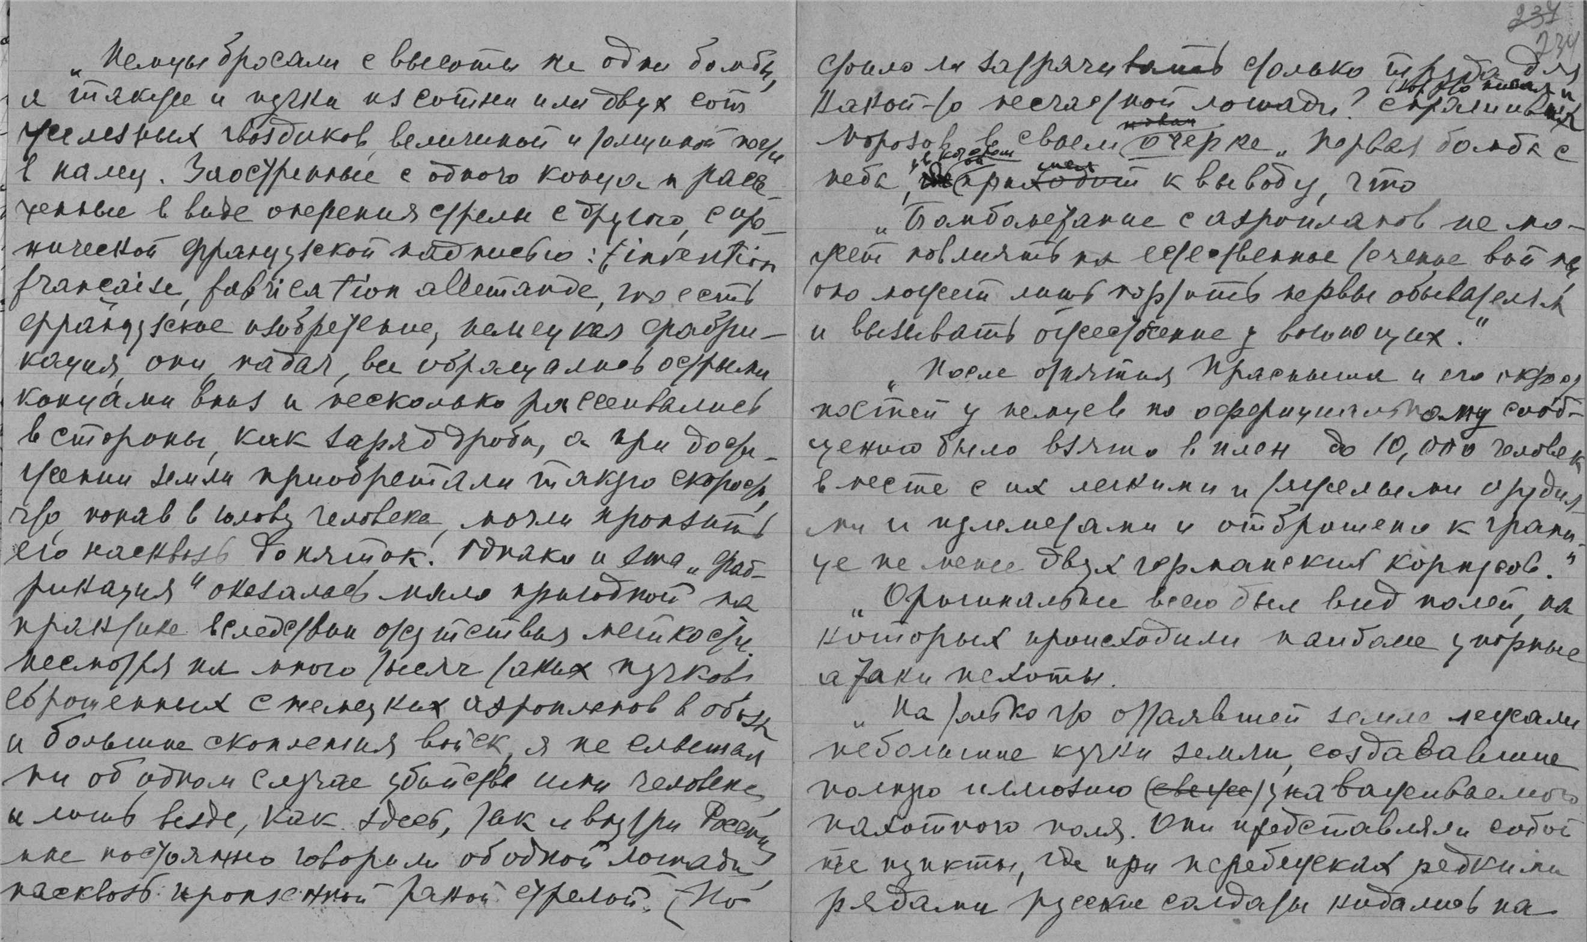 „Немцы бросали с высоты не одни бомбы,
а также и пучки из сотни или двух сот
железных гвоздиков, величиной и толщиной почти
в палец. Заострённые с одного конца и расс-
ченные в виде оперения стрелы с другого, с иро-
нической французской надписью: „invention
française, fabrication allemande, то есть
французское изобретение, немецкая фабри-
кация, они, падая, все обращались острыми
концами вниз и несколько рассеивались
в стороны, как заряд дроби, а при дости-
жении земли приобретали такую скорость,
что, попав в голову человека, могли пронзить
его насквозь до пяток. Однако и эта „фаб-
рикация“ оказалась мало пригодной на
практике вследствии отсутствия меткости.
Несмотря на много тысяч таких пучков
сброшенных с немецких аэропланов в обозы
и большие скопления войск, я не слышал
ни об одном случае убийства ими человека
и лишь везде, как здесь, так и внутри России
мне постоянно говорили об одной лошади,
насквозь пронзённой такой стрелой. (Но
237
234
стоило ли затрачивать столько труда для
какой-то несчастной лошади?
Морозов в своем очерке „Первая бомба с
неба“, к выводу, что
„Бомбометание с аэропланов не мо-
жет повлиять на естественное течение войны,
оно может лишь портить нервы обывателям
и вызывать ожесточение у воюющих.“
„После взятия Прасныша и его окрест-
ностей у немцев по оффициальному сооб-
щению было взято в плен до 10,000 человек
вместе с их легкими и тяжелыми орудия-
ми и пулеметами и отброшено к грани-
це не менее двух германских корпусов.“
„Оригинальнее всего был вид полей, на
которых происходили наиболее упорные
атаки пехоты.
„На только что оттаявшей земле лежали
небольшие кучки земли, создававшие
полную иллюзию (свеже) унаваживаемого
пахотного поля. Они представляли собой
те пункты, где при перебежках редкими
рядами русские солдаты кидались на